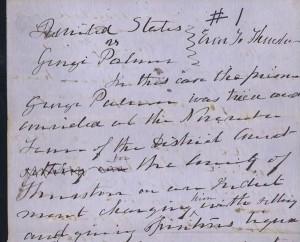 # 1
United States
vs
George Palmer
In this case the prisoner
George Palmer was tried and
convicted at the November
Term of the District Court
sitting in the County of
Thurston on an Indict
ment charging him with selling
and giving Spiritous liquor